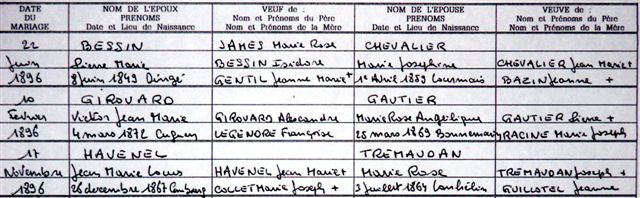 DATE DU MARIAGE NOM DE L'EPOUX PRENOMS Date et Lieu de Naissance VEUF de : Nom et Prénoms du Père Nom et Prénoms de la Mère NOM DE L'EPOUSE PRENOMS Date et Lieu de Naissance VEUVE de : Nom et Prénoms du Père Nom et Prénoms de la Mère
22 BESSIN JAMES Marie Rose CHEVALIER
Juin Pierre Marie BESSIN Isidore Marie Josephine CHEVALIER Jean Marie +
1896 8 juin 1849 Dingé GENTIL Jeanne Marie + 1er Avril 1859 Lourmais BAZIN Jeanne +
10 GIROUARD GAUTIER
Fevrier Victor Jean Marie GIROUARD Alexandre Marie Rose Angélique GAUTIER Pierre +
1896 4 mars 1872 Cuguen LEGENDRE Françoise 25 mars 1869 Bonnemain RACINE Marie Joseph
17 HAVENEL TREMAUDAN
Novembre Jean Marie Louis HAVENEL Jean Marie + Marie Rose TREMAUDAN Joseph +
1896 26 decembre 1867 Combourg COLLET Marie Joseph + 3 juillet 1864 GUILLOTEL Jeanne